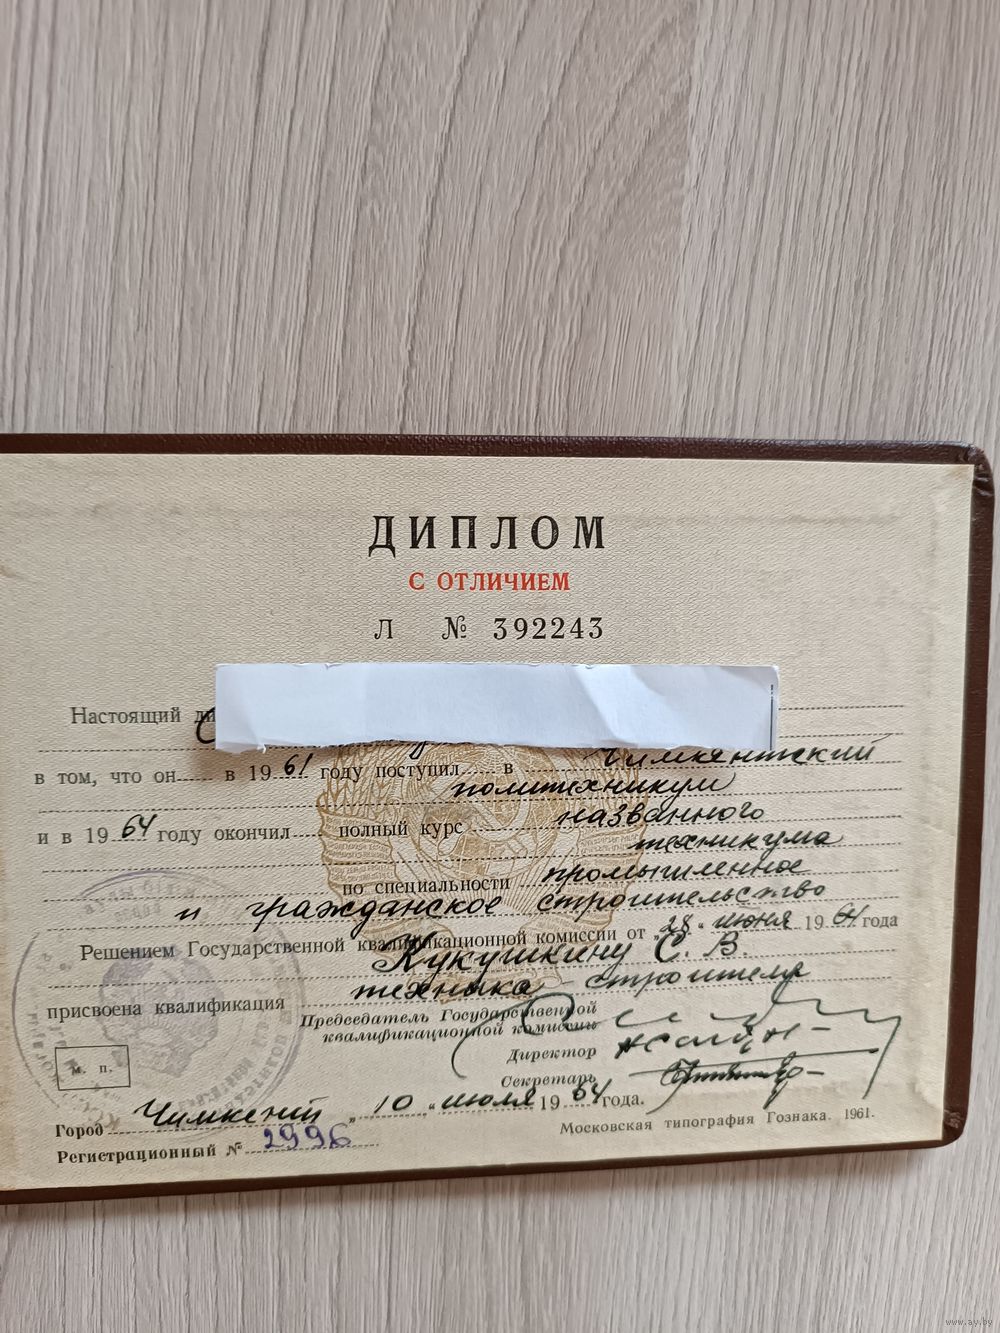 ДИПЛОМ
С ОТЛИЧИЕМ
Л № 392243
Настоящий ди
Чимкентский
в том, что он в 1961 году поступил в
политехникум
названного
и в 1964 году окончил полный курс
техникума
промышленное
по специальности
и гражданское строительство
Решением Государственной квалификационной комиссии от „28“ июня 1964 года
Кукушкину С. В.
присвоена квалификация техника - строителя
Председатель Государственной
квалификационной комиссии
Директор
Секретарь
м. п.
Город Чимкент „10“ июля 1964 года.
Московская типография Гознака. 1961.
Регистрационный № 2996
www.ay.by